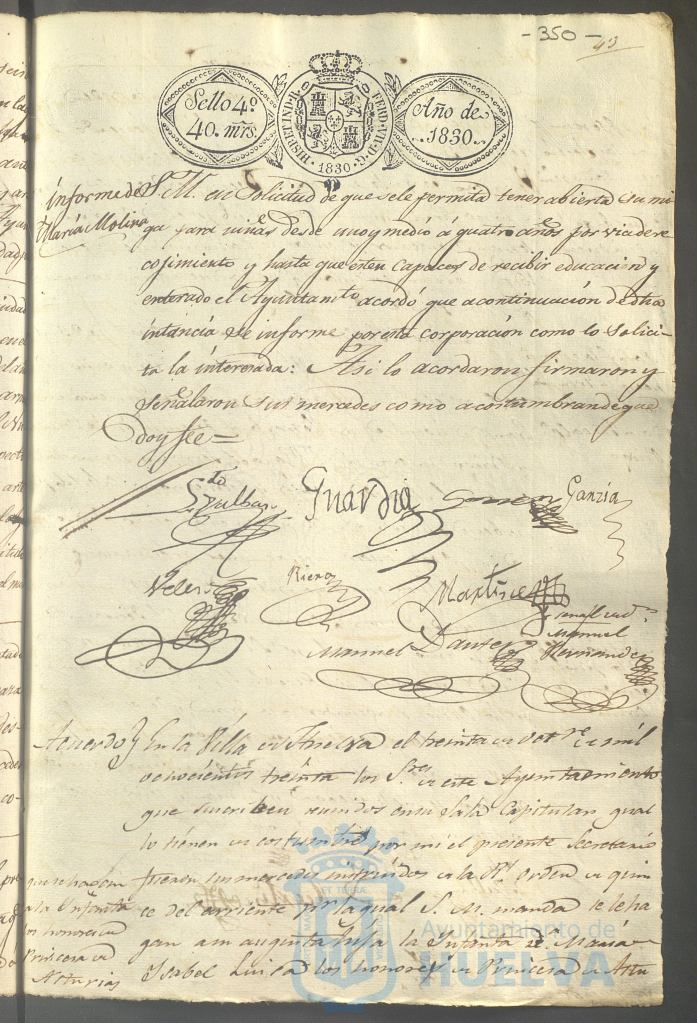 -350-
43
Sello 4º
40. mrs.
HISP. ET IND. R. FERD. VII. D. G. 1830.
Año de
1830.
informe de
Maria Molina
S. M. en Solicitud de que sele permita tener abierta su mi
ga para niñas desde uno y medio á quatro años por via de re
cojimiento y hasta que esten capaces de recibir educacion y
enterado el Ayuntamto acordó que acontinuacion de otra
intancia se informe por esta corporacion como lo solici-
ta la interesada: Asi lo acordaron firmaron y
señalaron sus mercedes como acostumbran de que
doy fee=
Guardia
Garzia
Velez
Riero
Martinez
Manuel
Manuel
Hernandez
Acuerdo
En la Villa de Huelva el treinta de Octre de mil
ochocientos treinta los Sres de este Ayuntamiento
que suscriben reunidos en su Sala Capitular qual
lo tienen de costumbre por mi el presente Secretario
que se hagan
a la Infanta
los honores de
Princesa de
Asturias
fueron sus mercedes intruidos de la Rl orden de quin
ce del corriente por la qual S. M. manda se le ha
gan a su augusta hija la Infanta Dª Maria
Isabel Luisa los honores de Princesa de Astu
Ayuntamiento de
HUELVA